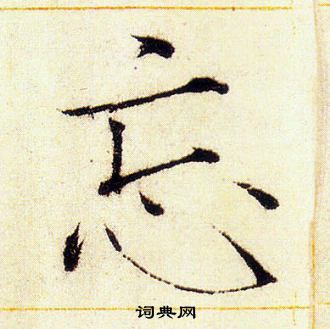 忘
词典网